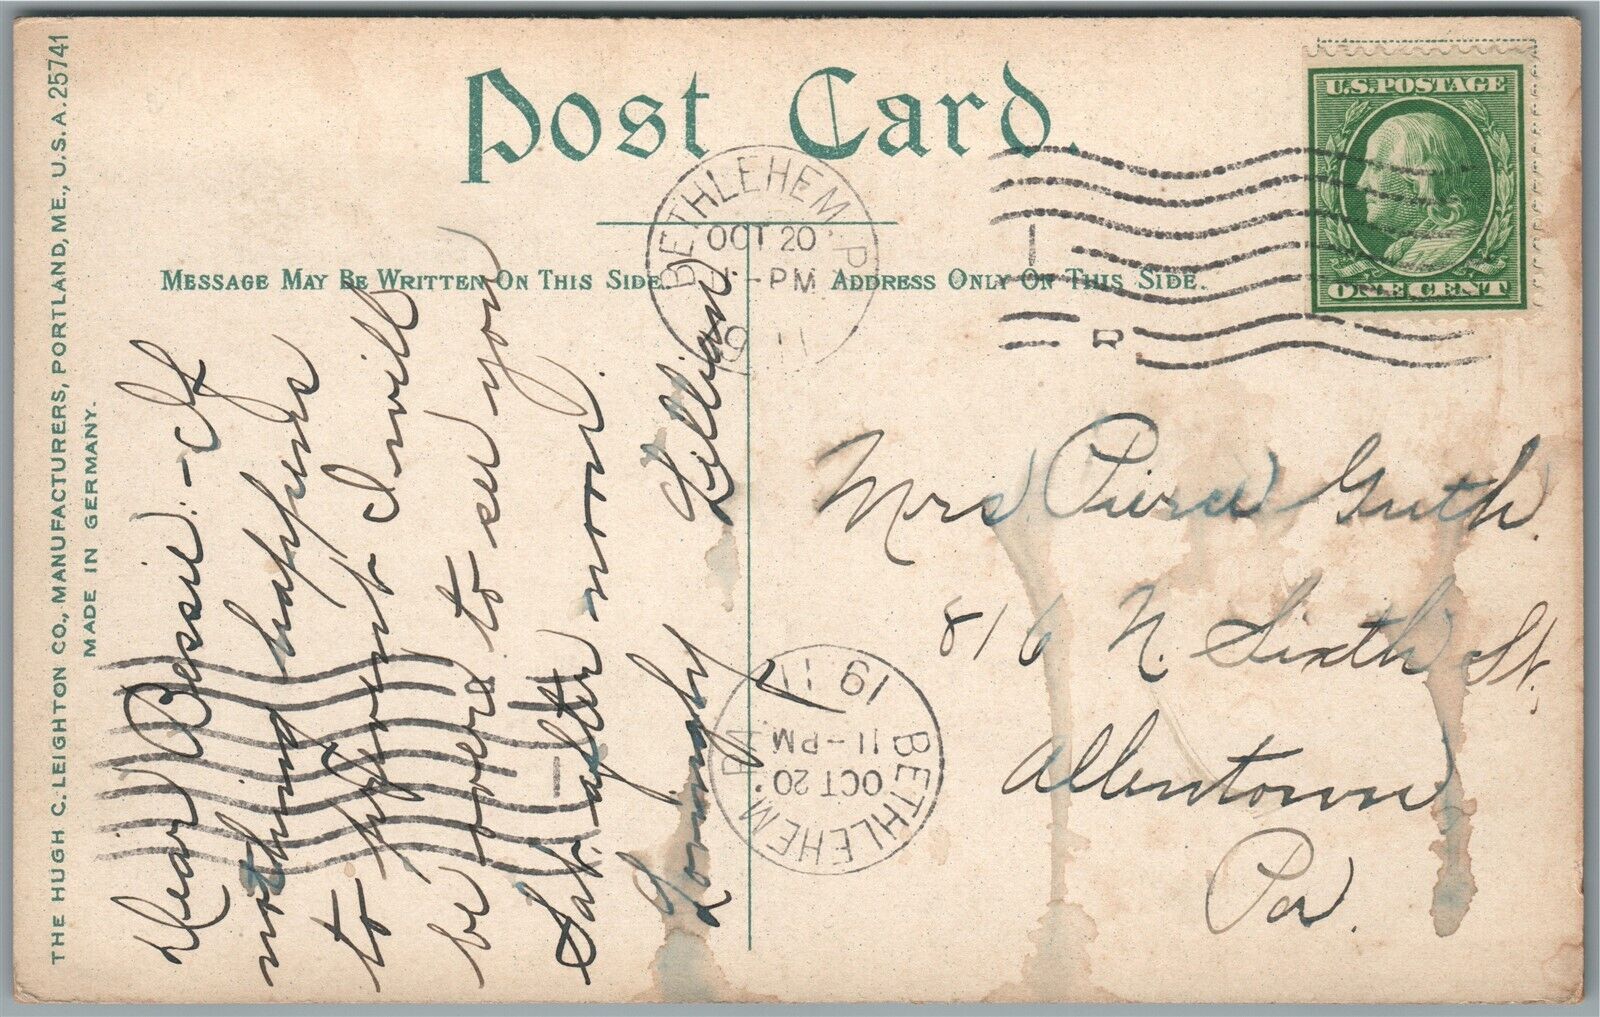 THE HUGH C. LEIGHTON CO., MANUFACTURERS, PORTLAND, ME., U.S.A. 25741
MADE IN GERMANY.
Post Card.
MESSAGE MAY BE WRITTEN ON THIS SIDE.
ADDRESS ONLY ON THIS SIDE.
U.S. POSTAGE
ONE CENT
BETHLEHEM, PA.
OCT 20
-PM
1911
Dear Bessie:- If
nothing happens
to prevent I will
be over to see you
Sat. afternoon.
Lovingly
Lillian.
BETHLEHEM, PA.
OCT 20
11-PM
1911
Mrs. Pierce Guth.
816 N. Sixth St.,
Allentown,
Pa.